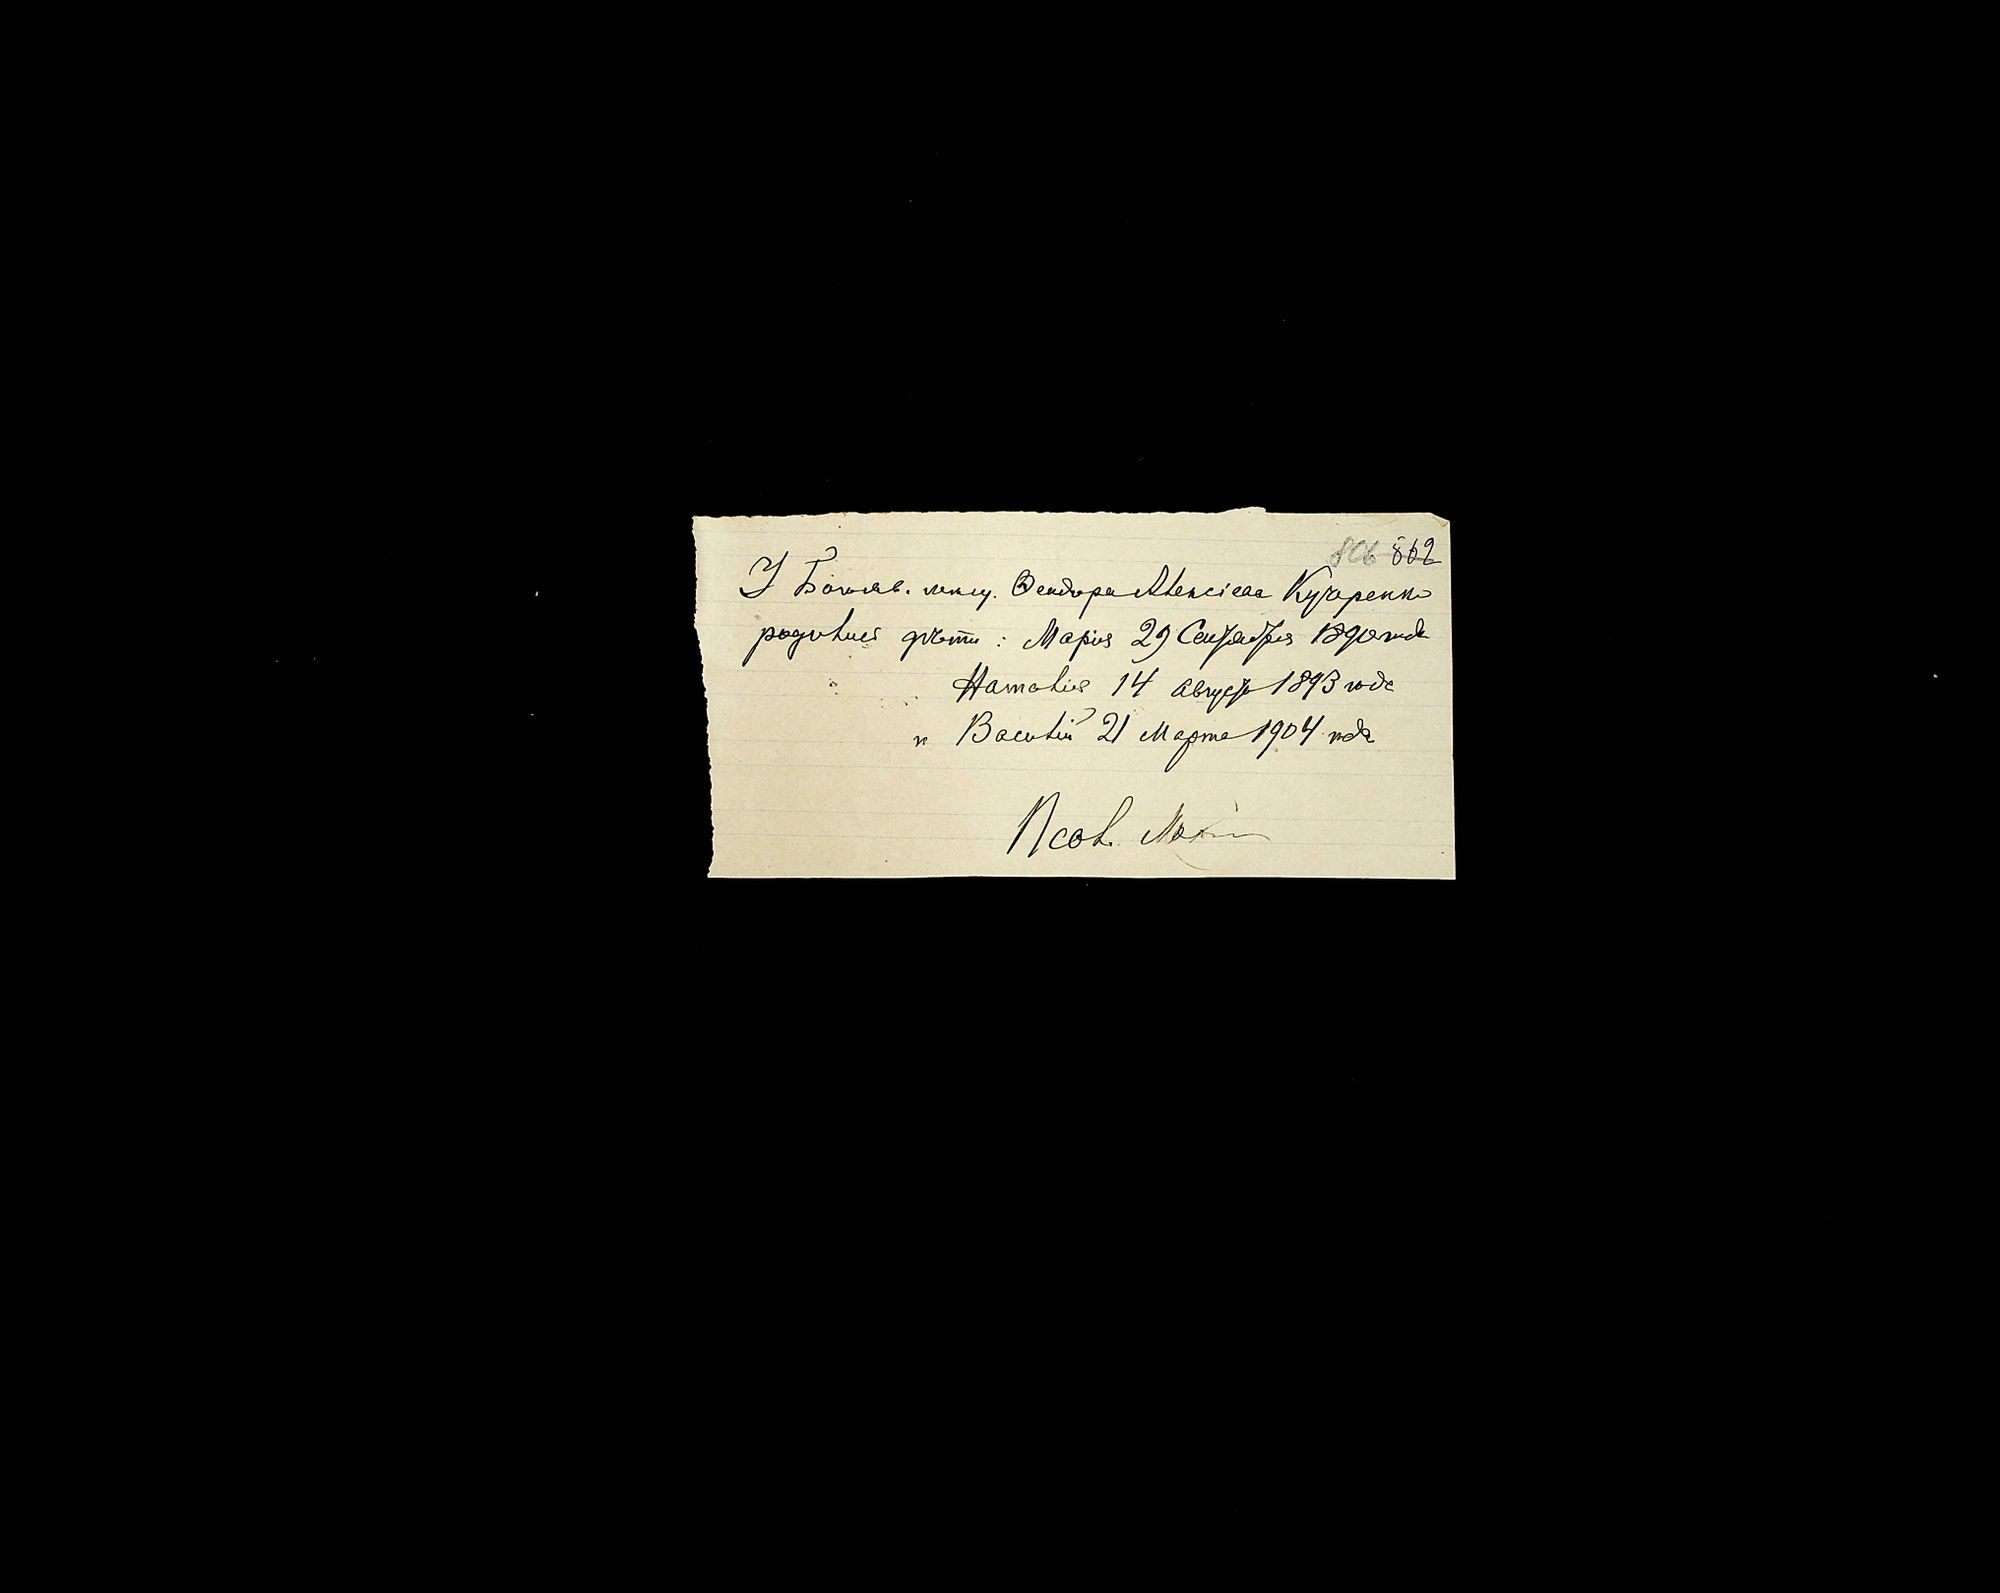 806 862
У Боголяв. мѣщ. Феодора Алексіева Кухаренко
родились дѣти: Марія 29 Сентября 1890 года
Наталія 14 Августа 1893 года
и Василій 21 Марта 1904 года
Псал.